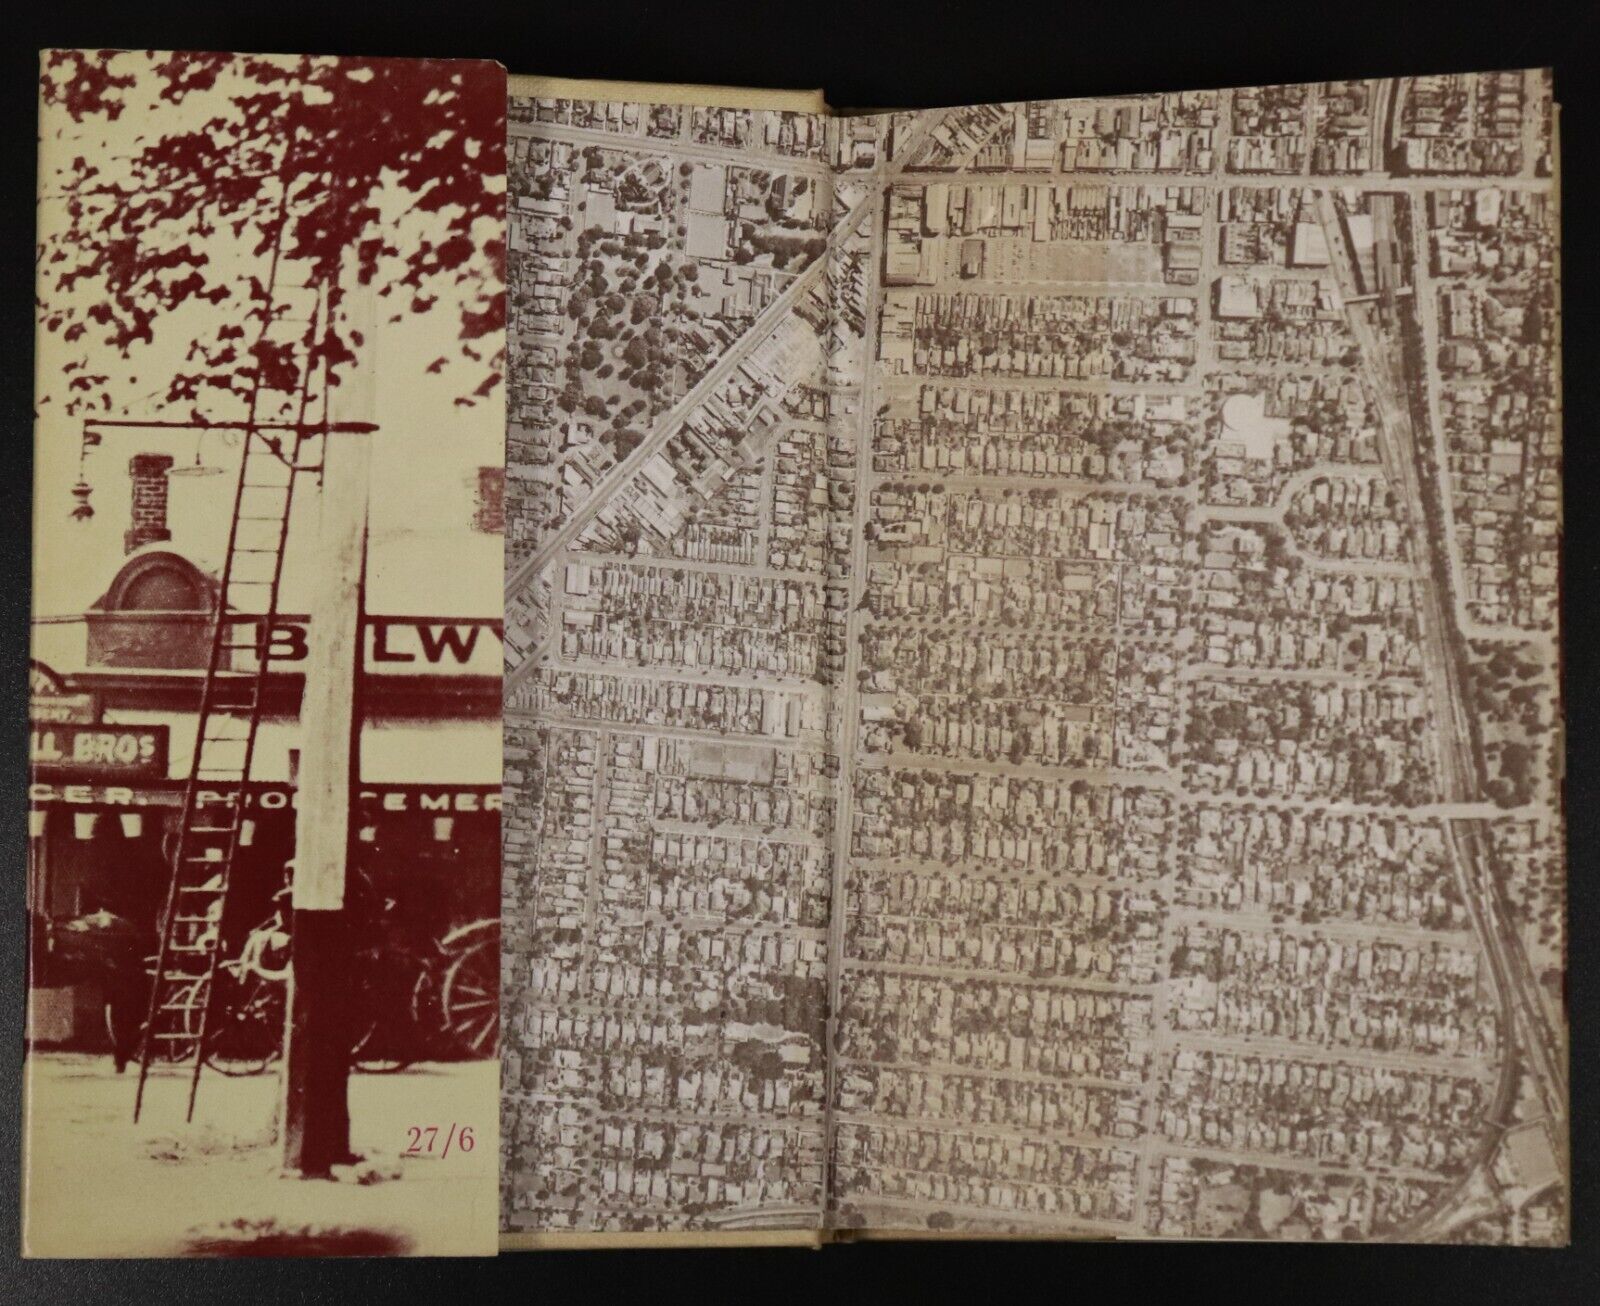 B LWY
LL BROS
CER. PRO CEMER
27/6